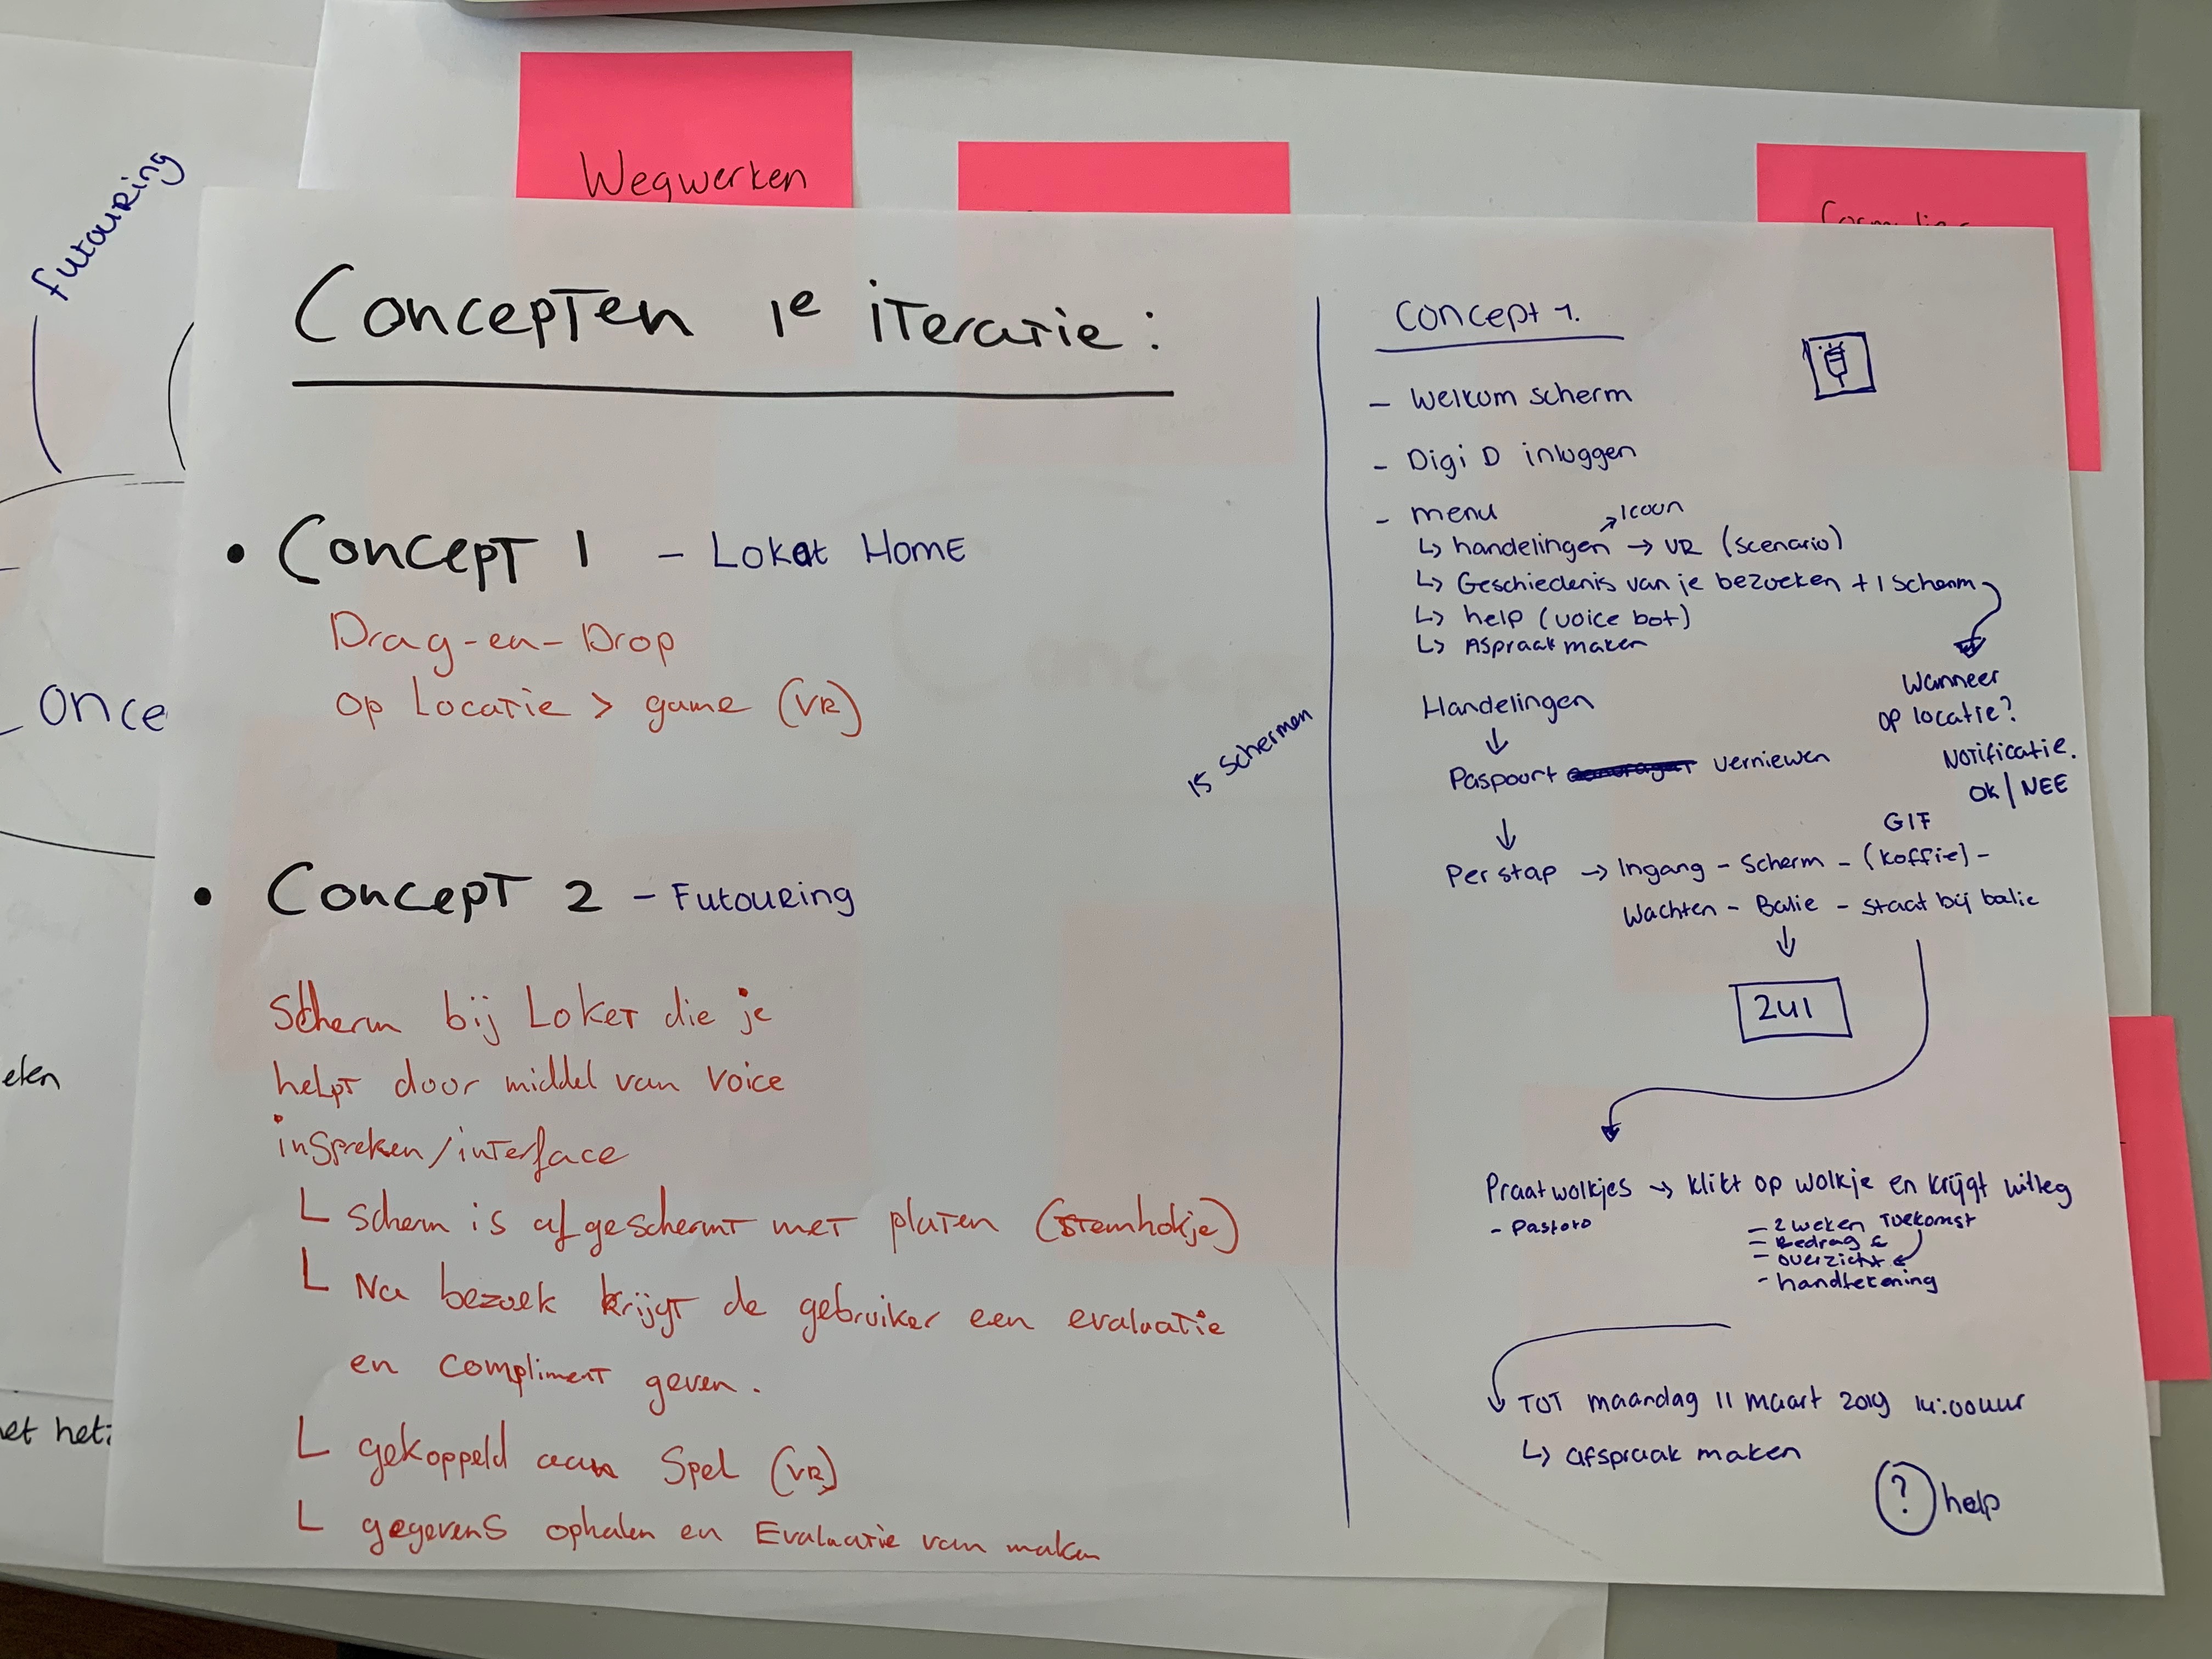 Futouring
Wegwerken
Concepten 1e iteratie:
• Concept 1 - Loket Home
Drag-en-Drop
op Locatie > game (VR)
• Concept 2 - Futouring
Scherm bij Loket die je
helpt door middel van Voice
inspreken/interface
L scherm is afgeschermt met platen (stemhokje)
L Na bezoek krijgt de gebruiker een evaluatie
en compliment geven.
L gekoppeld aan Spel (VR)
L gegevens ophalen en Evaluatie van maken
15 schermen
Concept 1.
- Welkom scherm
- Digi D inloggen
- menu
↗ icoon
↳ handelingen → VR (scenario)
↳ Geschiedenis van je bezoeken + 1 scherm
↳ help (voice bot)
↳ Aspraak maken
Wanneer
op locatie?
Notificatie.
OK | NEE
Handelingen
↓
Paspoort vernieuwen
↓
GIF
Per stap → Ingang - Scherm - (koffie) -
Wachten - Balie - staat bij balie
↓
Praatwolkjes → klikt op wolkje en krijgt uitleg
- 2 weken toekomst
- Bedrag €
- overzicht
- handtekening
TOT maandag 11 maart 2019 14:00uur
↳ afspraak maken
? help
once
elen
het: